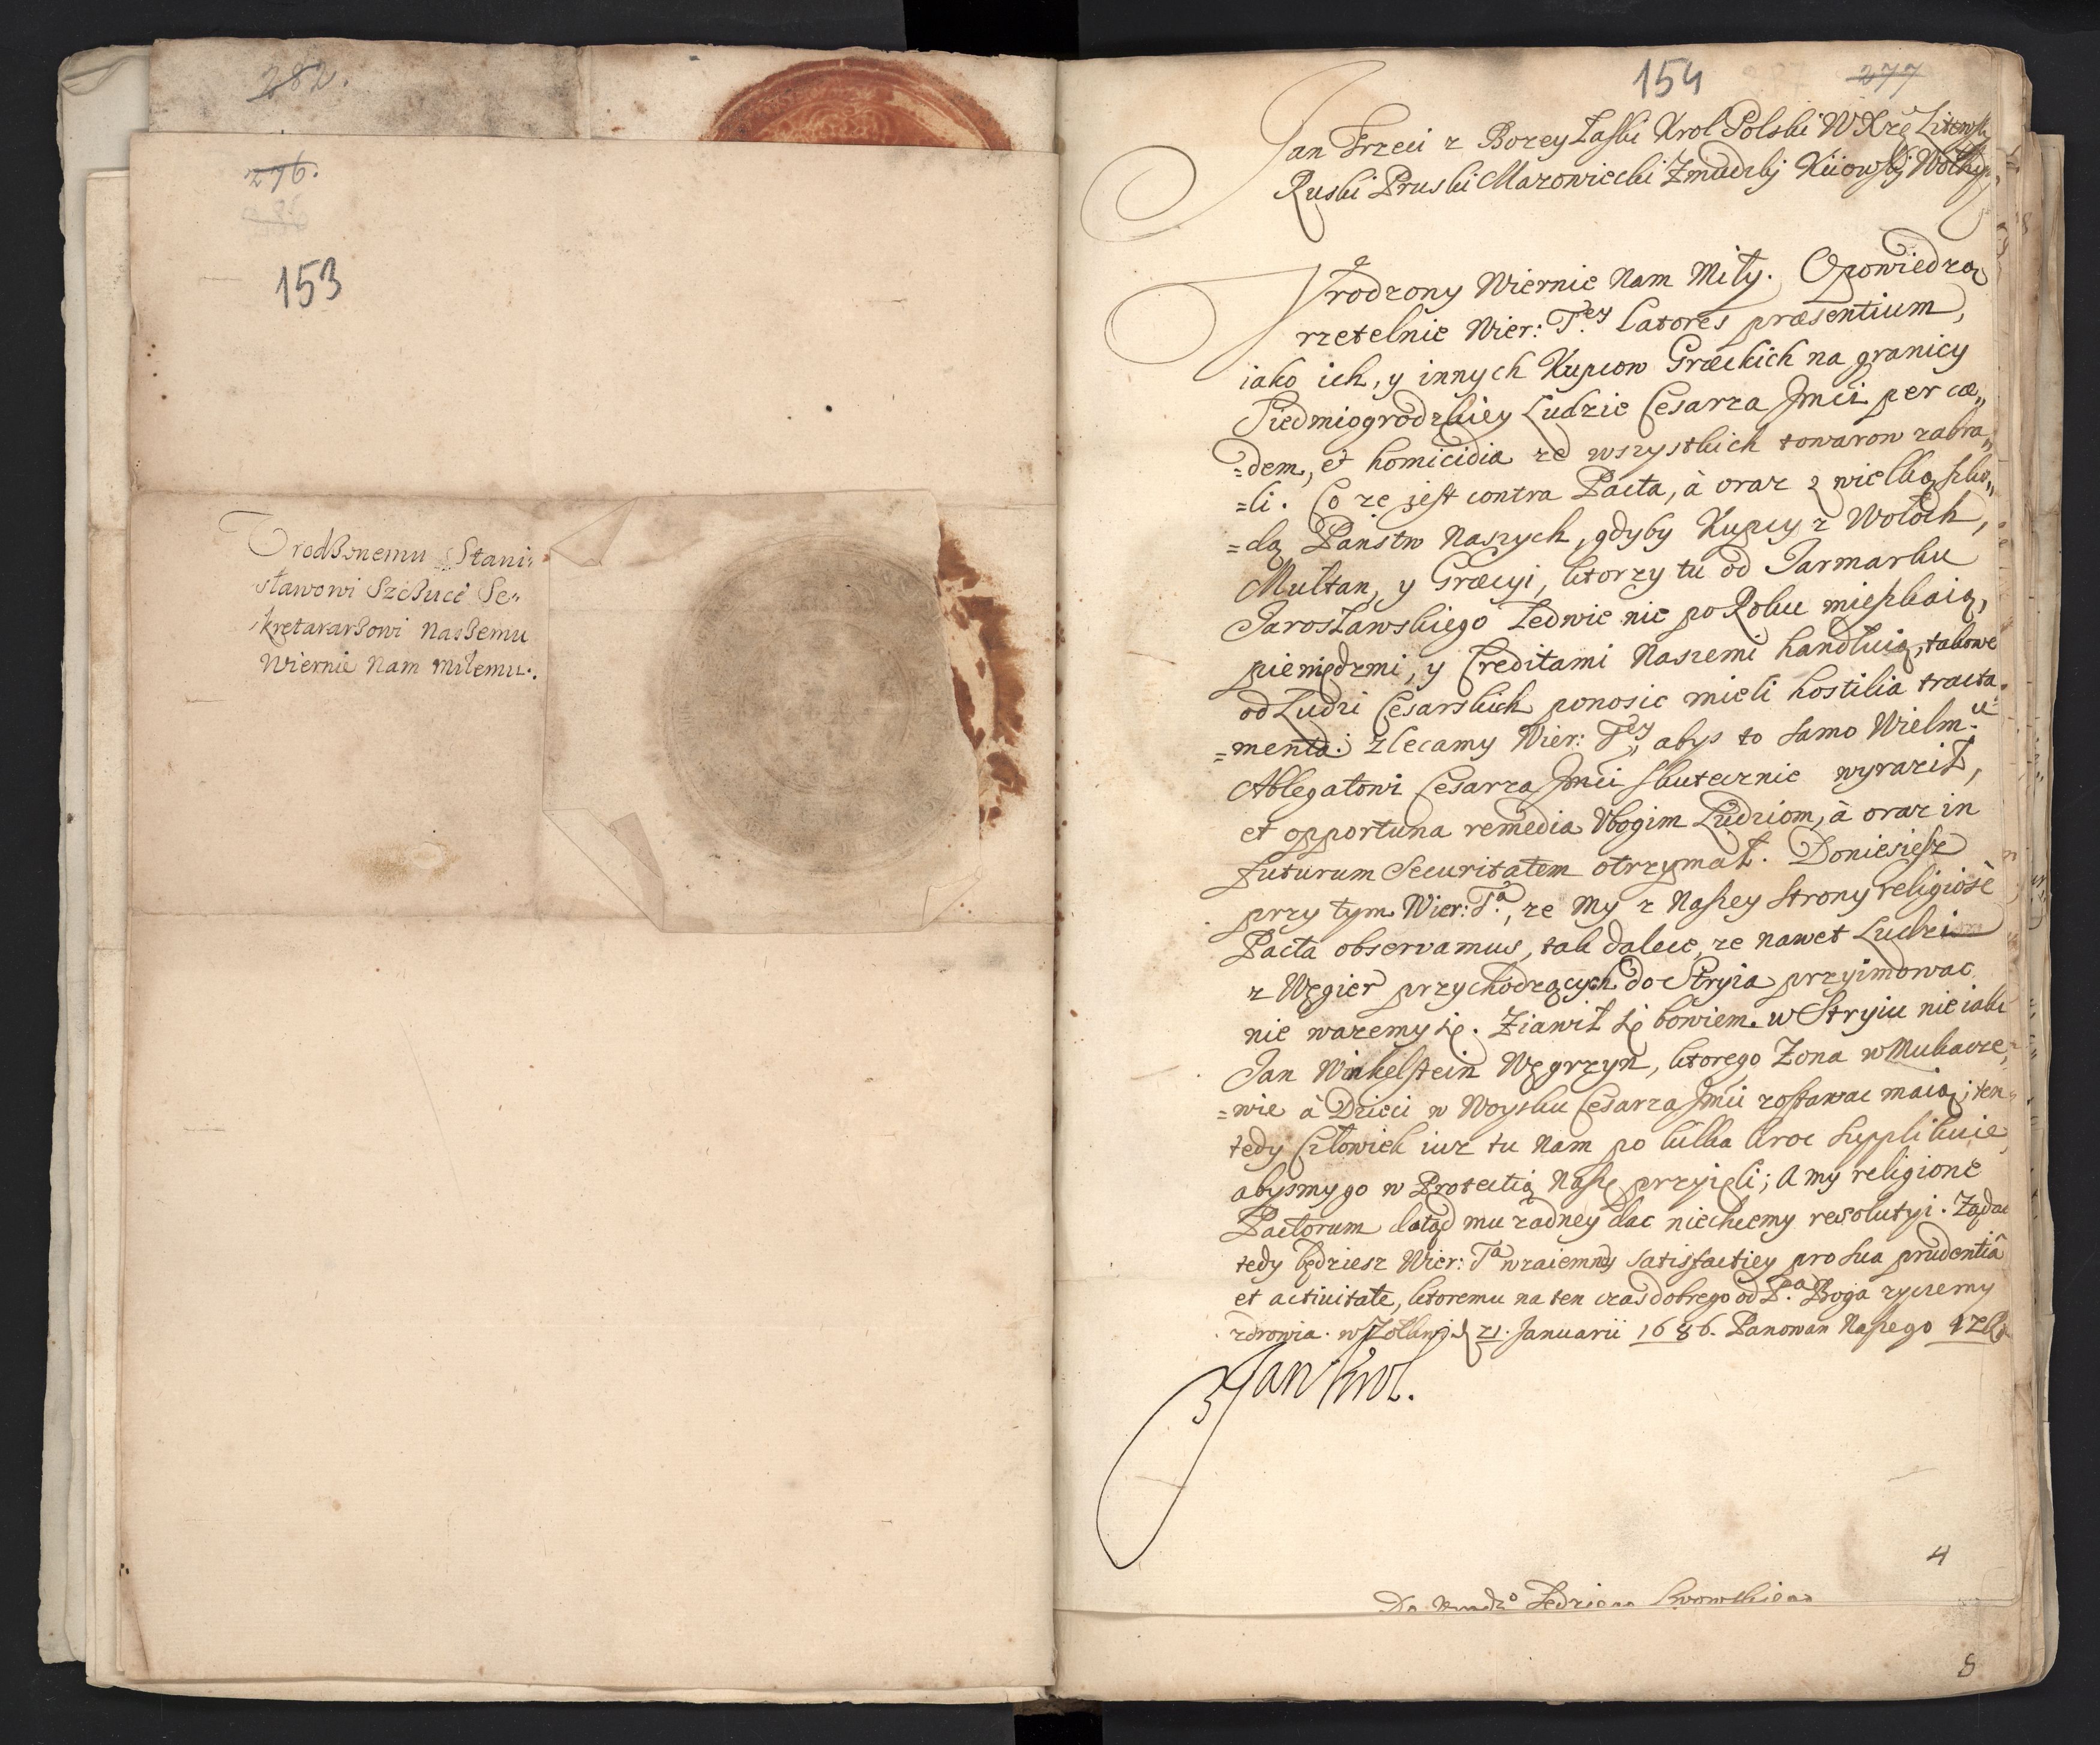 282.
276.
153
Vrodzonemu Stani-
sławowi Szczuce Se-
kretarzowi Naszemu
Wiernie Nam miłemu.
154
277
Jan Trzeci z Bozey Łaski Krol Polski W Xże Litewski
Ruski Pruski Mazowiecki Zmudzki Kiiowski Wołhyn
Vrodzony Wiernie Nam Miły. Opowiedzą
rzetelnie Wier: T.ey Latores præsentium,
iako ich, y innych Kupcow Græckich na granicy
Siedmiogrodzkiey Ludzie Cesarza Jmći per cæ„
=dem, et homicidia ze wszystkich towarow zabra„
=li. Co ze jest contra Pacta, à oraz z wielką szko„
=dą Panstw Naszych, gdyby Kupcy z Wołoch,
Multan, y Græcyi, ktorzy tu od Jarmarku
Jarosławskiego Ledwie nie po Roku mieszkaią,
pieniędzmi, y Creditami Naszemi handluią, takowe
od Ludzi Cesarskich ponosic mieli hostilia tracta„
=menta: zlecamy Wier: T.ey, abys to samo Wielm.u
Ablegatowi Cesarza Jmći skutecznie wyraził,
et opportuna remedia Vbogim Ludziom, à oraz in
futurum Securitatem otrzymał. Doniesiesz
przy tym Wier: T.a, ze My z Naszey strony religiosè
Pacta observamus, tak dalece, ze nawet Ludzi
z Węgier przychodzących do Stryia przyimowac
nie wazemy się. Ziawił się bowiem w Stryiu nieiaki
Jan Winkelstein Węgrzyn, ktorego Zona w Mukacze„
=wie à Dzieci w Woysku Cesarza Jmći zostawac maią; ten
tedy Człowiek iuz tu Nam po kilka kroc supplikuie,
abysmy go w Protectią Naszę przyięli; A my religione
Pactorum dotąd mu zadney dac niechcemy resolutyi. Ządac
tedy będziesz Wier: Ta wzaiemney satisfactiey pro sua prudentiâ
et actiuitate, ktoremu na ten czas dobrego od P.a Boga zyczemy
zdrowia. w Zołkwi d 21. Januarii 1686. Panowan Naszego 12 R
Jan Krol.
4
8